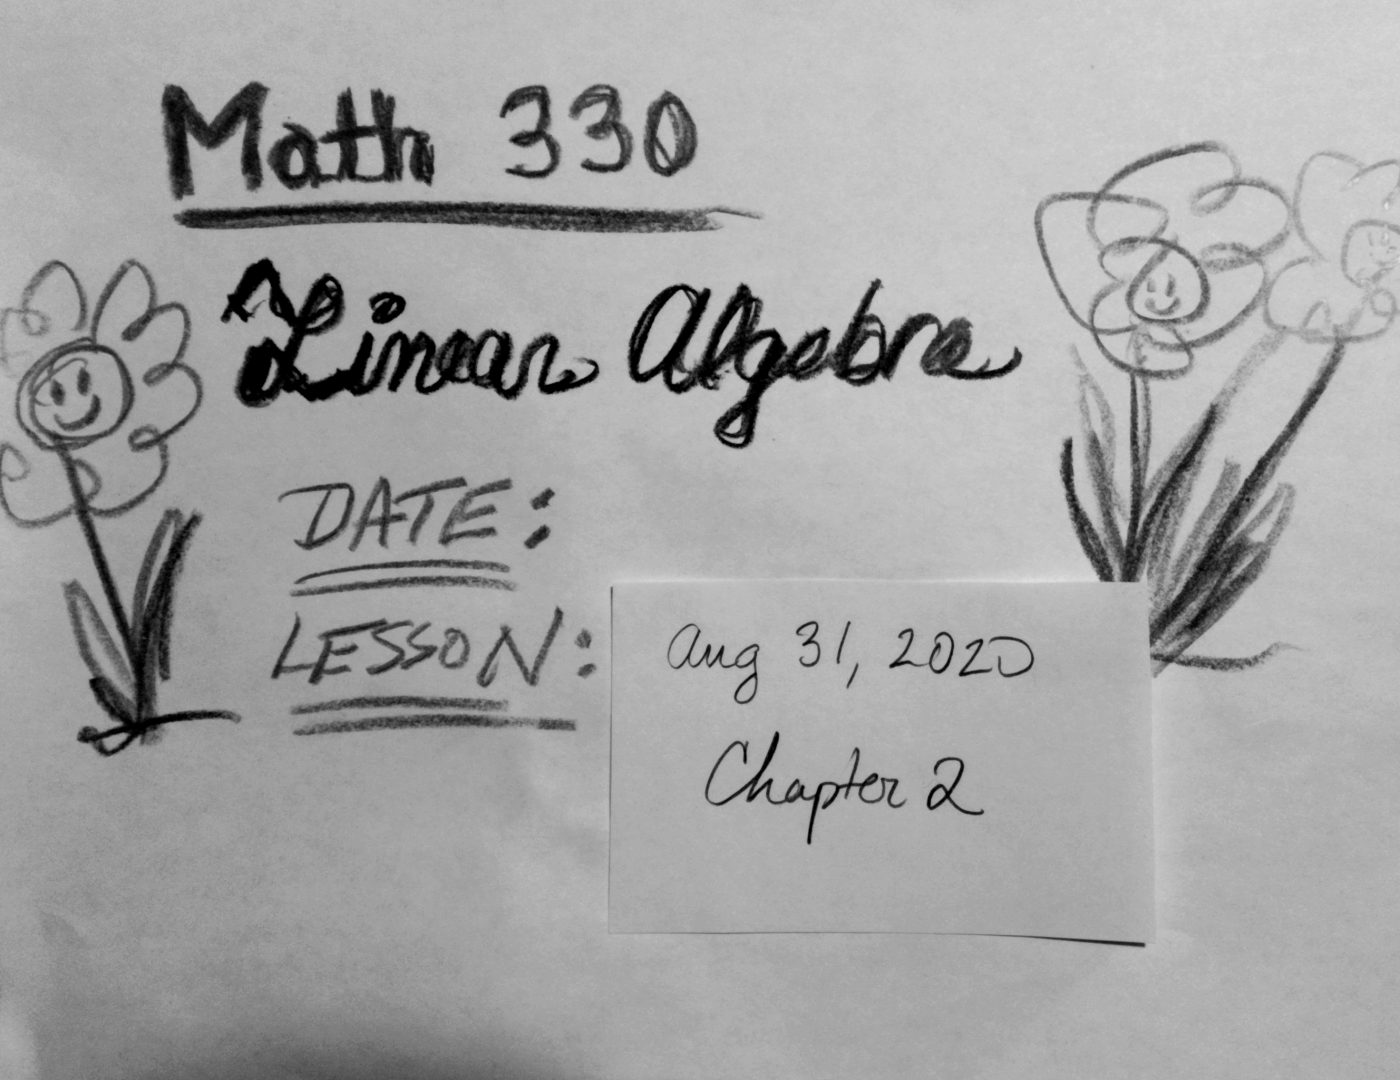 Math 330
Linear Algebra
DATE:
LESSON:
Aug 31, 2020
Chapter 2